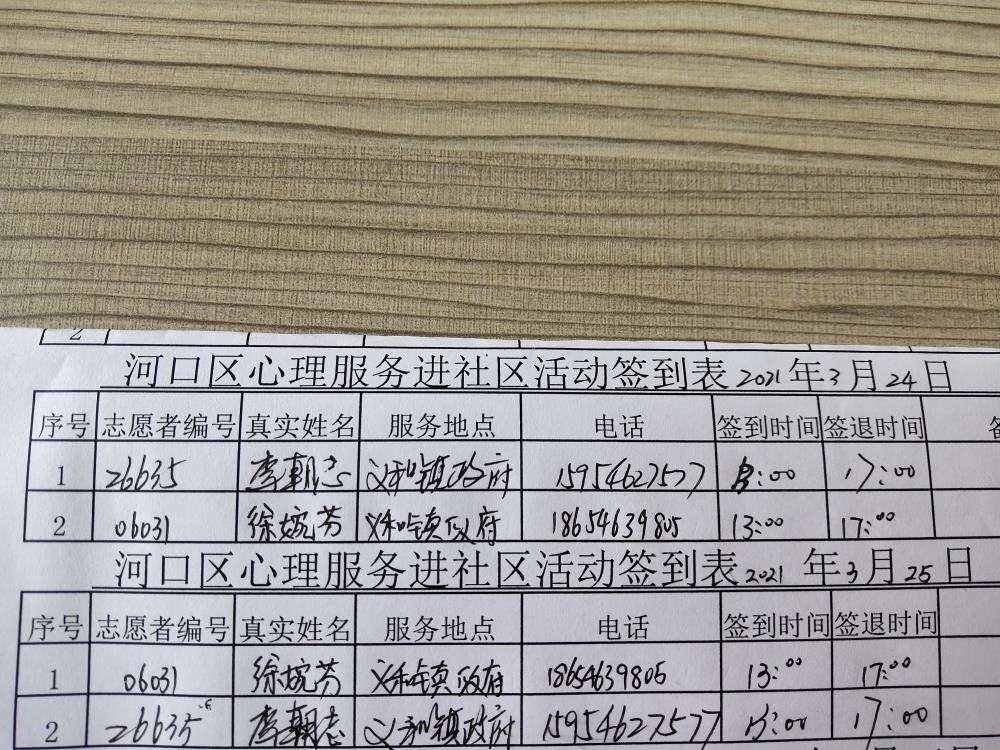 2
河口区心理服务进社区活动签到表 2021 年 3 月 24 日
序号 志愿者编号 真实姓名 服务地点 电话 签到时间 签退时间
1 26635 李朝志 义和镇政府 15954627577 13:00 17:00
2 06031 徐婉芳 义和镇政府 18654639805 13:00 17:00
河口区心理服务进社区活动签到表 2021 年 3 月 25 日
序号 志愿者编号 真实姓名 服务地点 电话 签到时间 签退时间
1 06031 徐婉芳 义和镇政府 18654639805 13:00 17:00
2 26635 李朝志 义和镇政府 15954627577 13:00 17:00